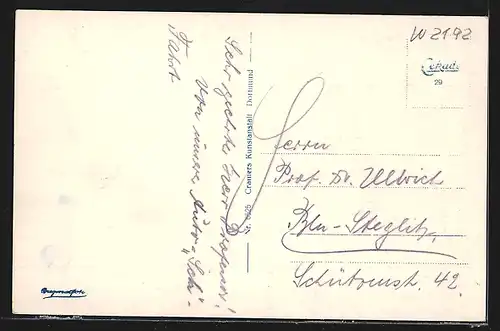 W 2192
Cekade
29
Sehr geehrter Herr Professor!
Von unserer Auto-
Fahrt
Nr. Cramers Kunstanstalt Dortmund
Herrn
Prof. Dr. Ullrich
Bln-Steglitz,
Schützenst. 42.